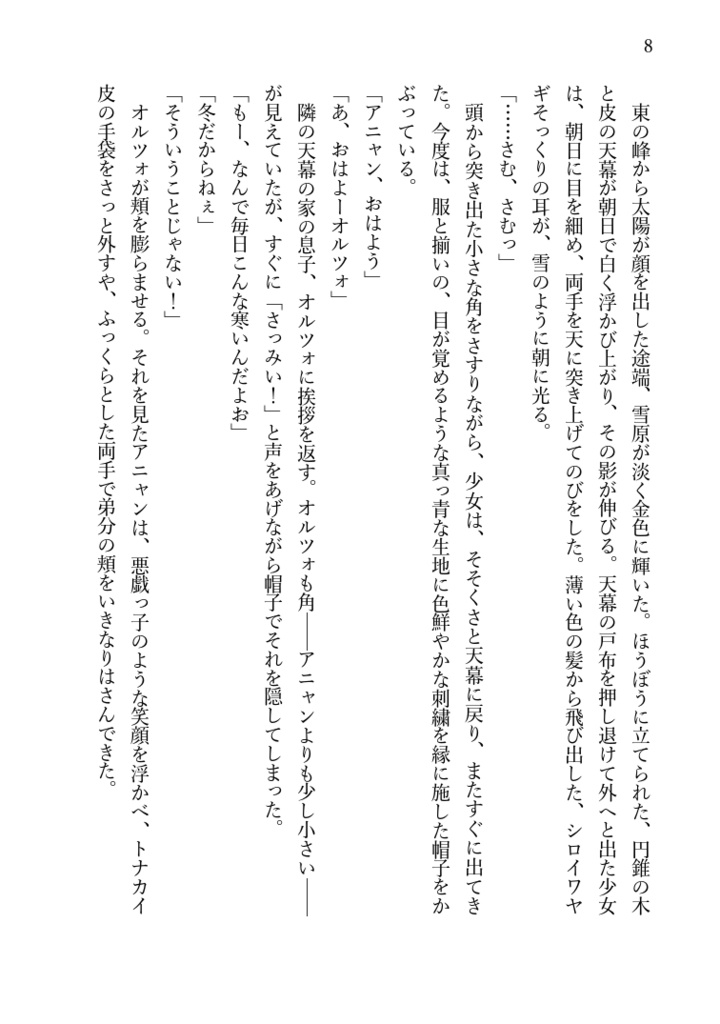 8
　東の峰から太陽が顔を出した途端、雪原が淡く金色に輝いた。ほうぼうに立てられた、円錐の木
と皮の天幕が朝日で白く浮かび上がり、その影が伸びる。天幕の戸布を押し退けて外へと出た少女
は、朝日に目を細め、両手を天に突き上げてのびをした。薄い色の髪から飛び出した、シロイワヤ
ギそっくりの耳が、雪のように朝に光る。
「……さむ、さむっ」
　頭から突き出た小さな角をさすりながら、少女は、そそくさと天幕に戻り、またすぐに出てき
た。今度は、服と揃いの、目が覚めるような真っ青な生地に色鮮やかな刺繍を縁に施した帽子をか
ぶっている。
「アニャン、おはよう」
「あ、おはよーオルツォ」
　隣の天幕の家の息子、オルツォに挨拶を返す。オルツォも角――アニャンよりも少し小さい――
が見えていたが、すぐに「さっみい！」と声をあげながら帽子でそれを隠してしまった。
「もー、なんで毎日こんな寒いんだよお」
「冬だからねぇ」
「そういうことじゃない！」
　オルツォが頬を膨らませる。それを見たアニャンは、悪戯っ子のような笑顔を浮かべ、トナカイ
皮の手袋をさっと外すや、ふっくらとした両手で弟分の頬をいきなりはさんできた。